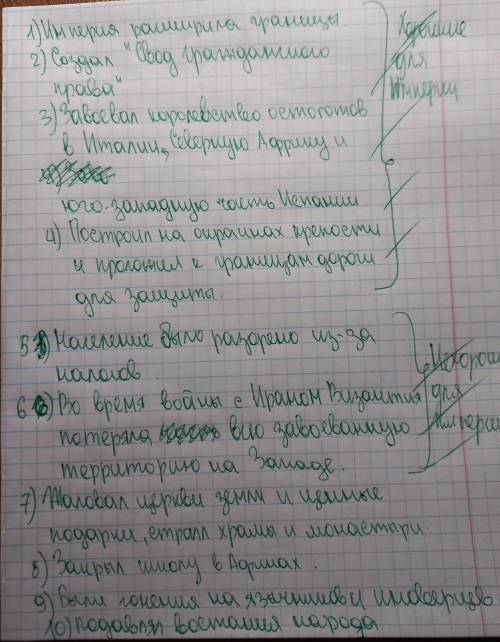 1) Империя расширила границы.
2) Создал "Свод гражданского
права"
3) Завоевал королевство остготов
в Италии, Северную Африку и
юго-западную часть Испании
4) Построил на окраинах крепости
и проложил к границам дороги
для защиты.
Хорошие
для
Империи
5) Население было разорено из-за
налогов.
6) Во время войны с Ираном Византия
потеряла всю завоеванную
территорию на Западе.
Нехорошие
для
Империи
7) Жаловал церкви земли и ценные
подарки, строил храмы и монастыри.
8) Закрыл школу в Афинах.
9) Были гонения на язычников и иноверцев
10) подавлял восстания народа